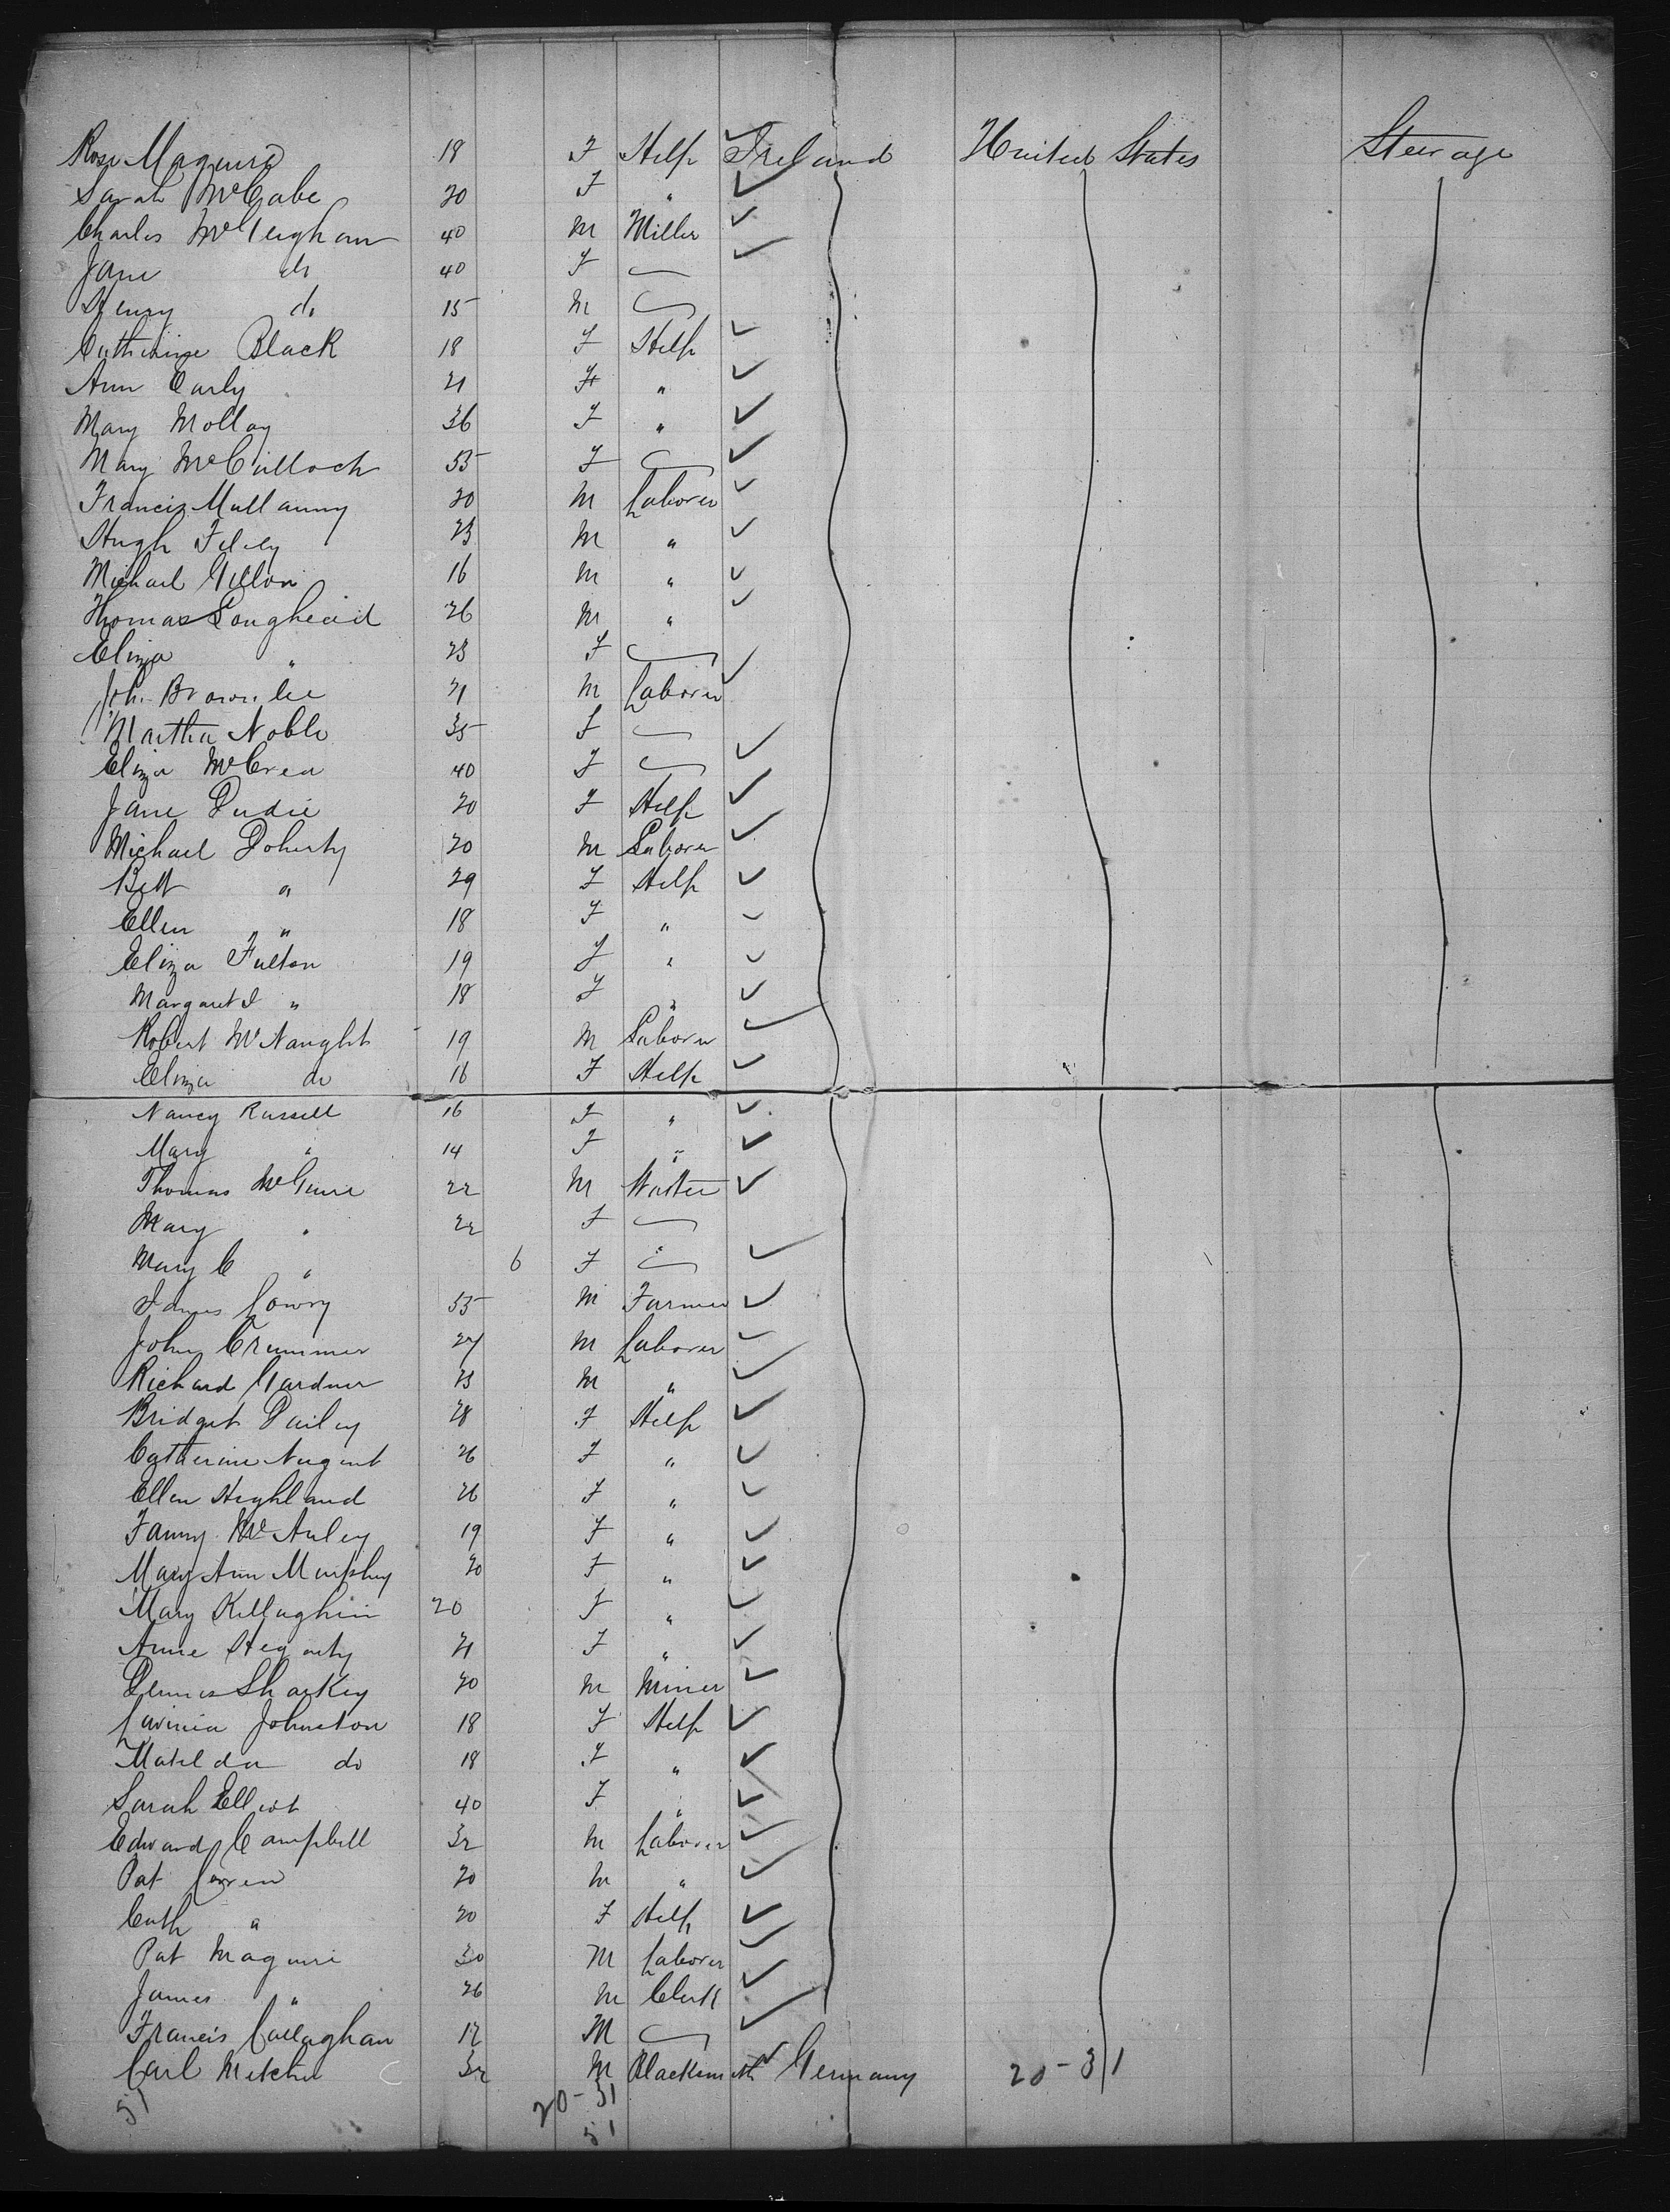 Rose Maguire 18 F Help Ireland United States Steerage
Sarah McCabe 20 F "
Charles McVeigham 40 M Miller
Jane do 40 F
Henry do 15 M
Catherine Black 18 F Help
Ann Carly 21 F "
Mary Molloy 36 F "
Mary McCulloch 55 F
Francis Mullanny 20 M Laborer
Hugh 23 M "
Michael Gillon 16 M "
Thomas Loughead 26 M "
Eliza " 23 F
Joh. Brownlee 21 M Laborer
Martha Noble 35 F
Eliza McCrea 40 F
Jane Dudie 20 F Help
Michael Doherty 20 M Laborer
Bett " 29 F Help
Ellen " 18 F "
Eliza Fulton 19 F "
Margaret J " 18 F "
Robert McNaught 19 M Laborer
Eliza do 16 F Help
Nancy Russell 16 F "
Mary " 14 F "
Thomas McGuire 22 M
Mary " 22 F
Mary C " 6 F
James Lowry 55 M Farmer
John Crummer 27 M Laborer
Richard Gardner 23 M "
Bridget Dailey 28 F Help
Catherine Nugent 26 F "
Ellen Highland 26 F "
Fanny McAuley 19 F "
Mary Ann Murphy 20 F "
Mary Killaghin 20 F "
Anne Hegarty 21 F "
Dennis Sharkey 20 M Miner
Lavinia Johnston 18 F Help
Matilda do 18 F "
Sarah Elliot 40 F "
Edward Campbell 32 M Laborer
Pat Curren 20 M "
Cath " 20 F Help
Pat Maguire 30 M Laborer
James " 26 M Clerk
Francis Callaghan 12 M
Carl 32 M Blacksmith Germany 20-31
51 20-31
51